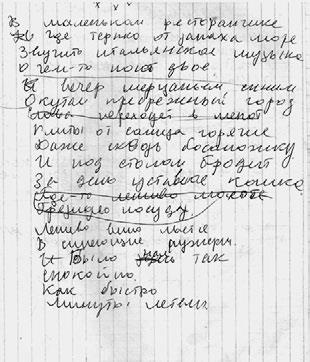 х х х
В маленьком ресторанчике
Где терпко от запаха море
Звучит итальянская музыка
О чем-то поют двое.
И вечер мерцаньем синим
Окутал прибрежный город
Слова переходят в шепот
Плиты от солнца горячие
Даже сквозь босоножку
И под столом бродит
За день уставшая кошка
Где-то лениво
посуду
Лениво вино льется
В сияющие
И было так
спокойно.
Как быстро
Минуты летели